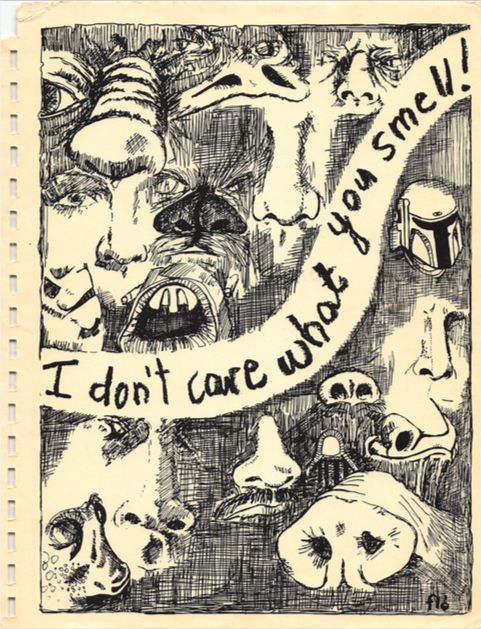 I don't care what you smell!